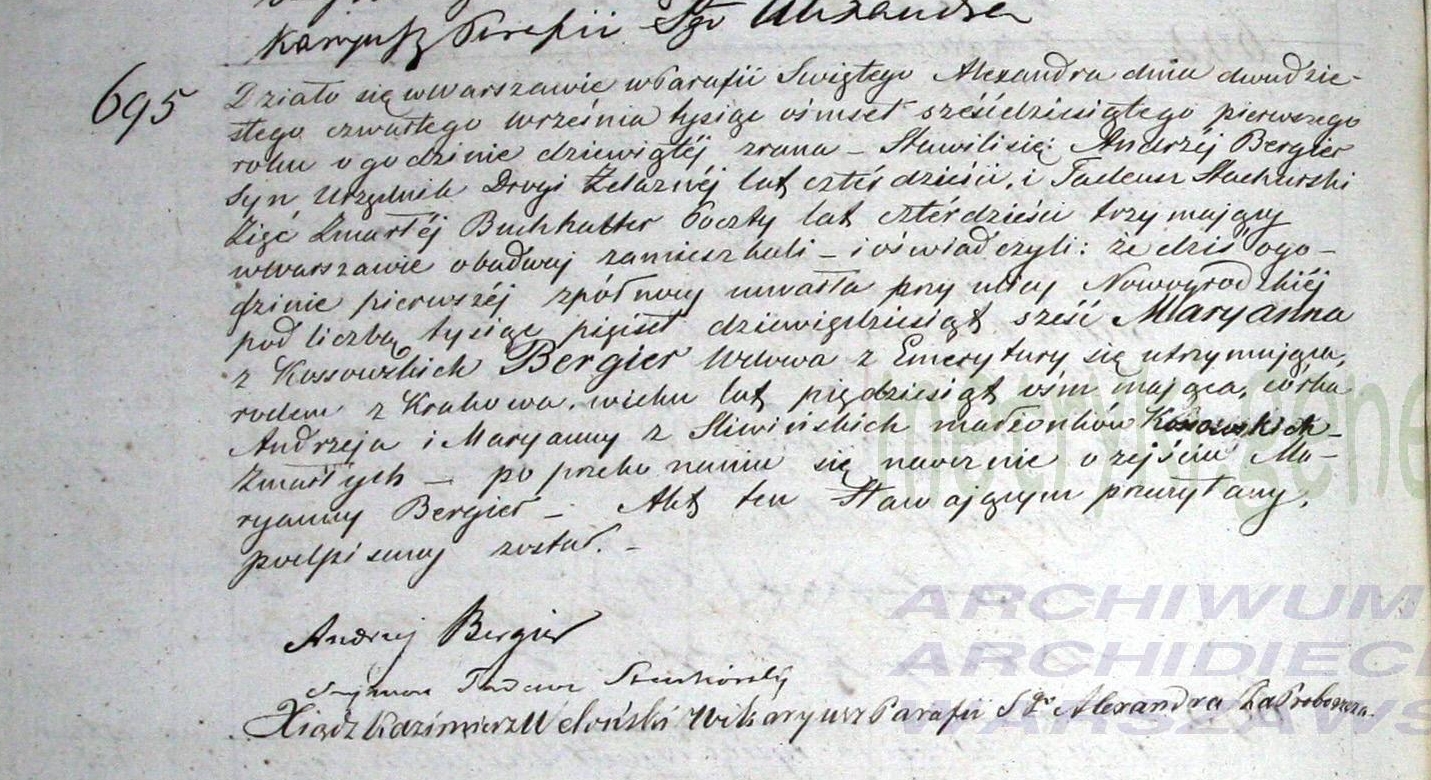 Parafii Sgo Alexandra
695
Działo się w Warszawie w Parafii Swiętego Alexandra dnia dwudzie-
stego czwartego Września tysiąc ośmset sześćdziesiątego pierwszego
roku o godzinie dziewiątéj zrana – Stawili się: Andrzéj Bergier
Syn Urzędnik Drogi Żelaznéj lat czterdzieści, i Tadeusz Stachurski
Zięć Zmarłéj Buchhalter Poczty lat czterdzieści trzy mający
w Warszawie obadwaj zamieszkali – i oświadczyli: że dziś o go-
dzinie pierwszéj z północy umarła przy ulicy Nowogrodzkiéj
pod liczbą tysiąc pięćset dziewięćdziesiąt sześć Maryanna
z Kossowskich Bergier Wdowa z Emerytury się utrzymująca,
rodem z Krakowa, wieku lat pięćdziesiąt ośm mająca, córka
Andrzeja i Maryanny z Sliwińskich małżonków Kossowskich –
Zmarłych – po przekonaniu się naocznie o zejściu Ma-
ryanny Bergier – Akt ten Stawającym przeczytany,
podpisany został. –
Andrzej Bergier
Szymon Tadeusz Stachórski
Xiądz Kazimierz Weloński Wikaryusz Parafii Sgo Alexandra Za Proboszcza.
metryki.gene
ARCHIWUM
ARCHIDIEC
WARSZAWS